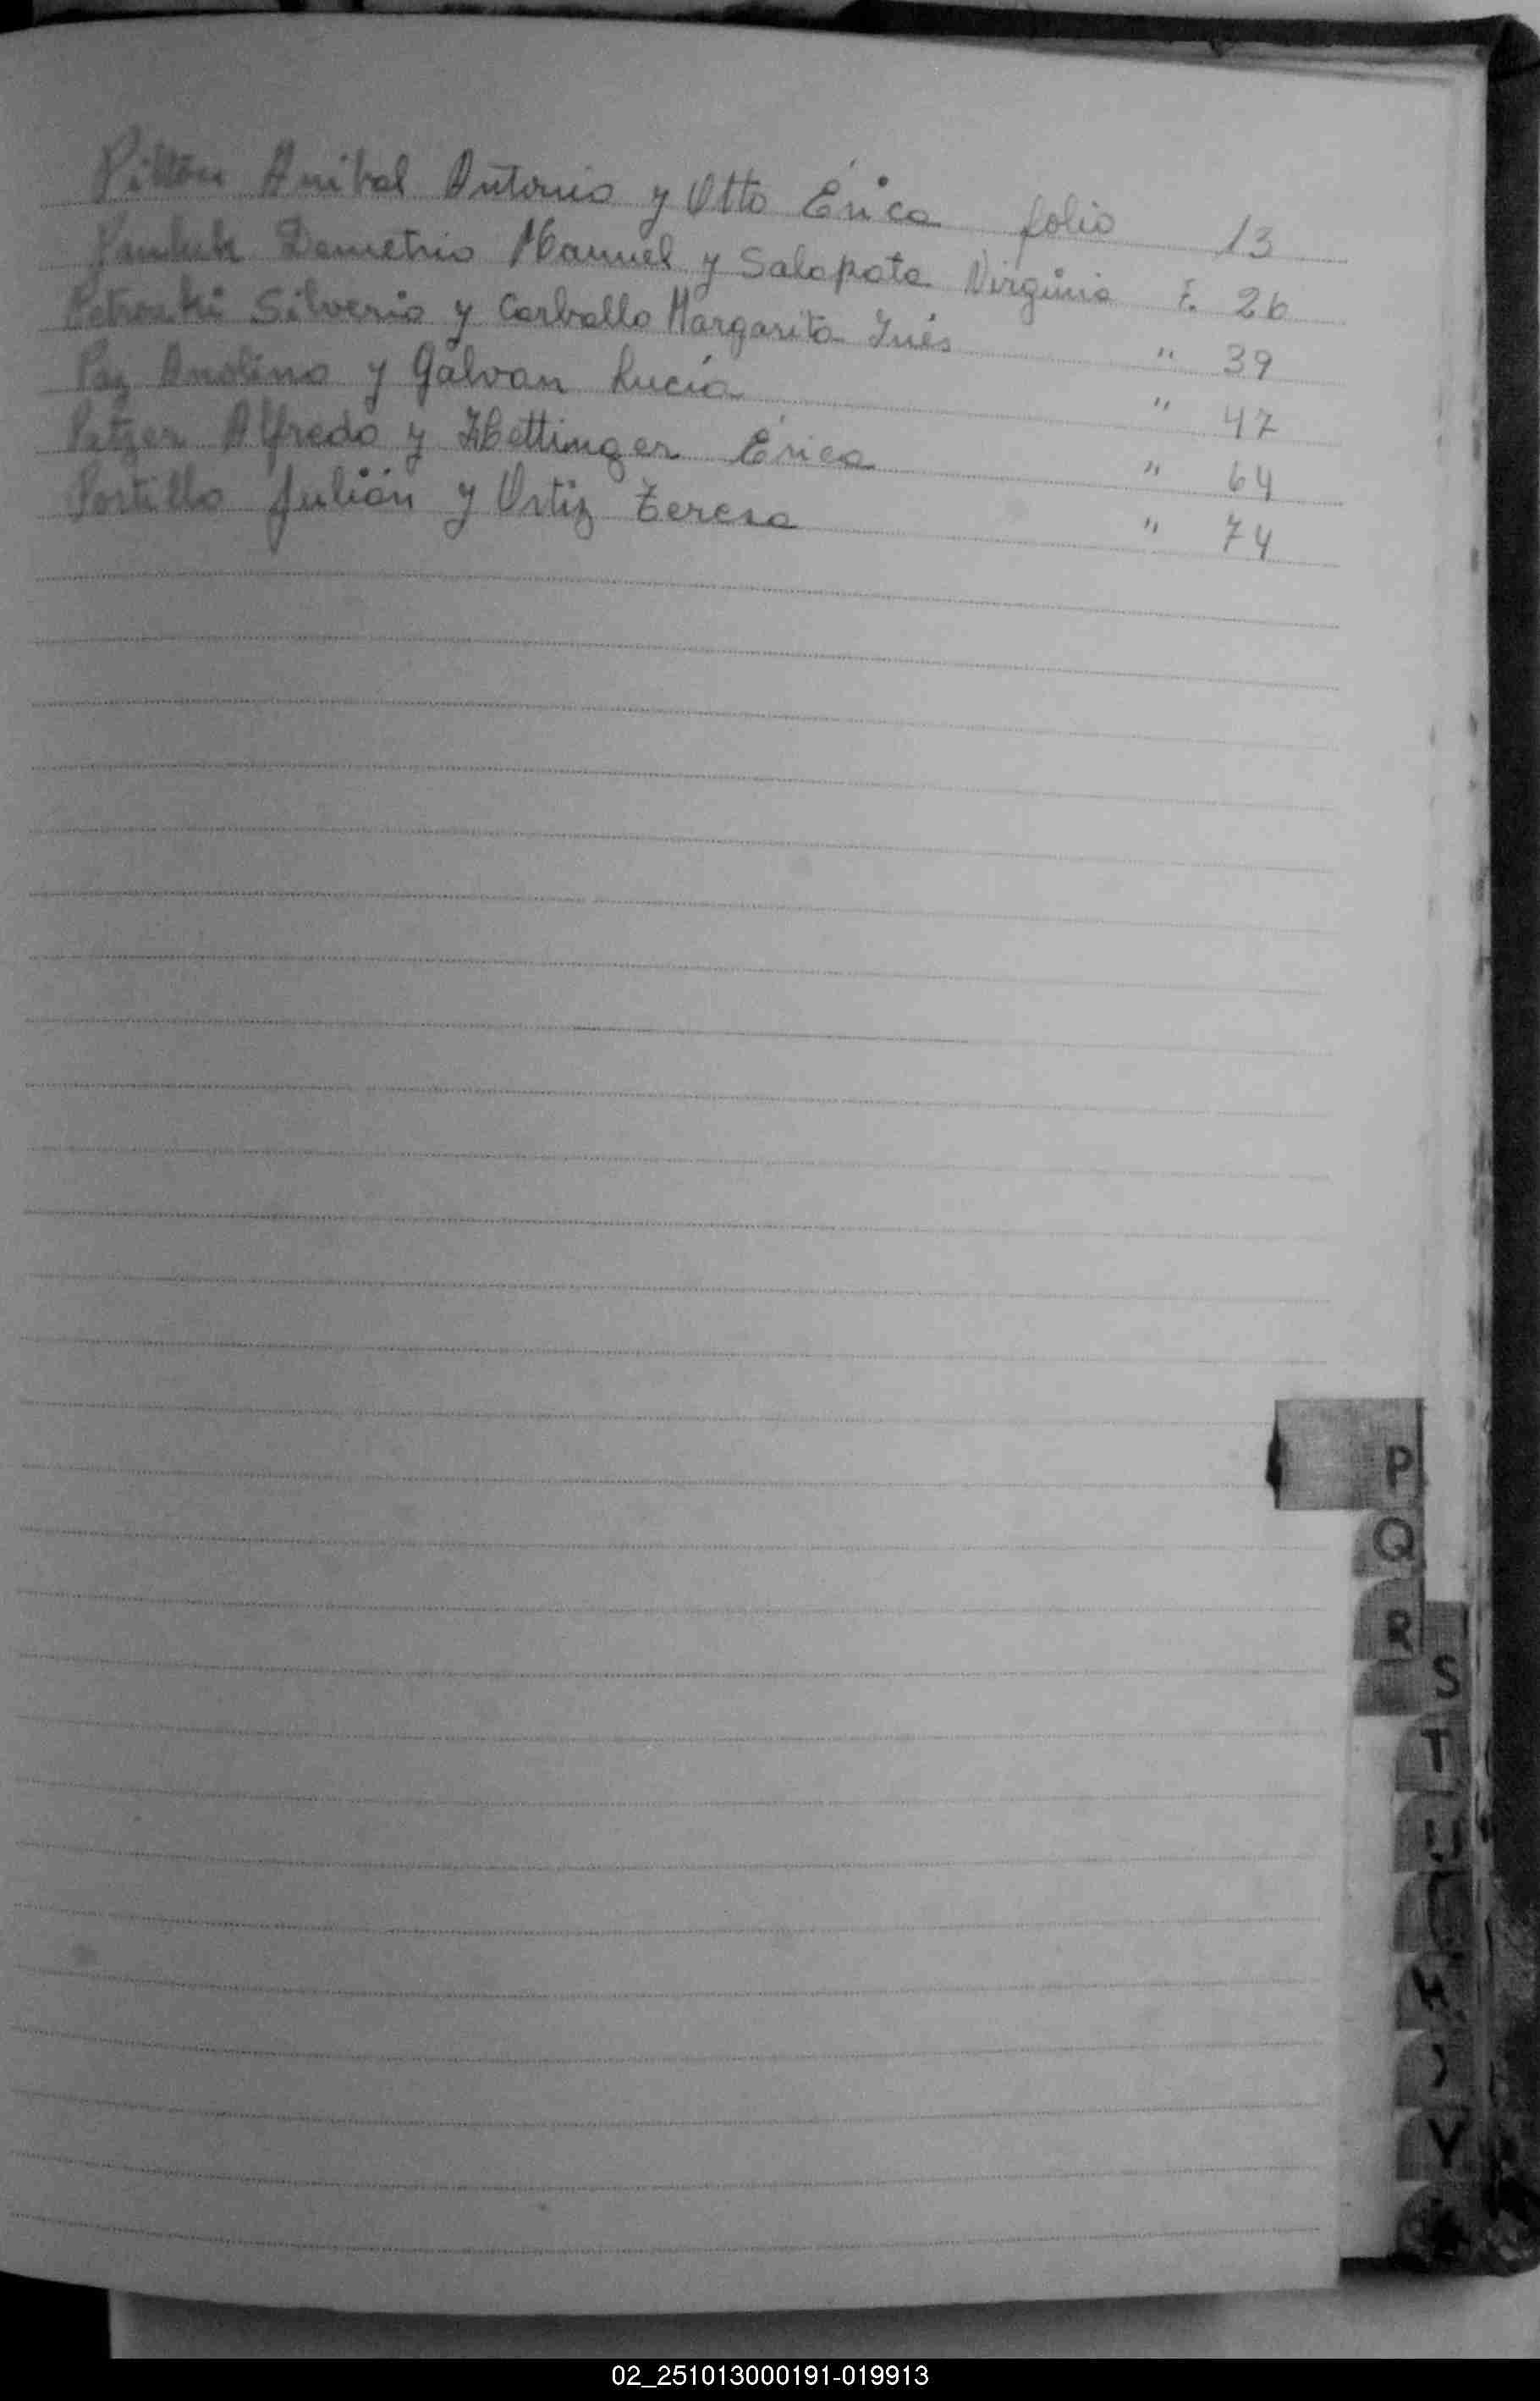 Aníbal Antonio y Otto Érica folio 13
Demetrio Manuel y Salapata Virginia F. 26
Silverio y Carballo Margarita Inés " 39
Paz y Galvan Lucía " 47
Petzer Alfredo y Hettinger Érica " 64
Portillo Julián y Ortiz Teresa " 74
P
Q
R
S
T
U
Y
02_251013000191-019913